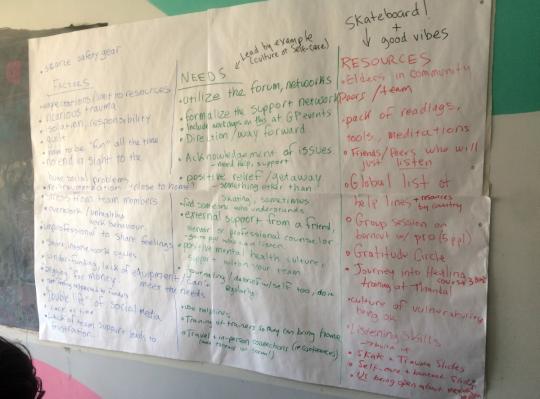 • scarce safety gear
FACTORS
• expectations/
no resources
• vicarious trauma
• isolation, responsibility
• guilt
to be "fun" all the time
• no end in sight to the
huge social problems
close to home
• stress from team members
• overwork / unhealthy
work behaviour
unprofessional to share feelings
work cycles
• underfunding, lack of equipment / can't
for money" meet the needs
• "double life" of social media
• lack of time
• Lack of team support leads to
frustration
Lead by example
(culture of self-care)
NEEDS
• utilize the forum, networks
• formalize the support network
• include workshops on this at GP events
• Direction / way forward
• Acknowledgement of issues
→ need help, support
• positive relief / getaway
→ something other than
skating, sometimes
• find someone who understands
• external support from a friend,
mentor or professional counselor
or group who can listen
• positive mental health culture,
support within your team
• journaling / debrief w/ self too, done
regularly
• use helplines
• Training of trainers so they can bring home
• Travel + in-person connections (conferences)
Skateboard!
+
good vibes
RESOURCES
• Elders in community
Peers / team
• pack of readings,
tools, meditations
• Friends / Peers who will
just listen
• Global list of
help lines + resources
by country
• Group session on
burnout w/ pro (5 ppl)
• Gratitude Circle
• Journey into Healing
training at
• culture of vulnerability
being ok
• Listening Skills
• Skate + Trauma Slides
• Self-care + burnout Slides
• Us being open about